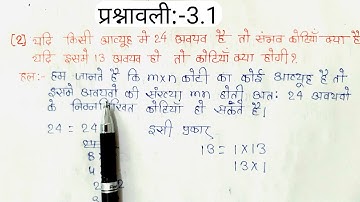 प्रश्नावली:-3.1
(2) यदि किसी आव्यूह में 24 अवयव है तो संभव कोटियाँ क्या है
यदि इसमें 13 अवयव हो तो कोटियाँ क्या होगी?
हल:- हम जानते है कि m×n कोटी का कोई आव्यूह है तो
इसमें अवयवों की संख्या mn होती अतः 24 अवयवो
के निम्नलिखित कोटियाँ हो सकेते है।
24 = 24
इसी प्रकार
13 = 1×13
13×1